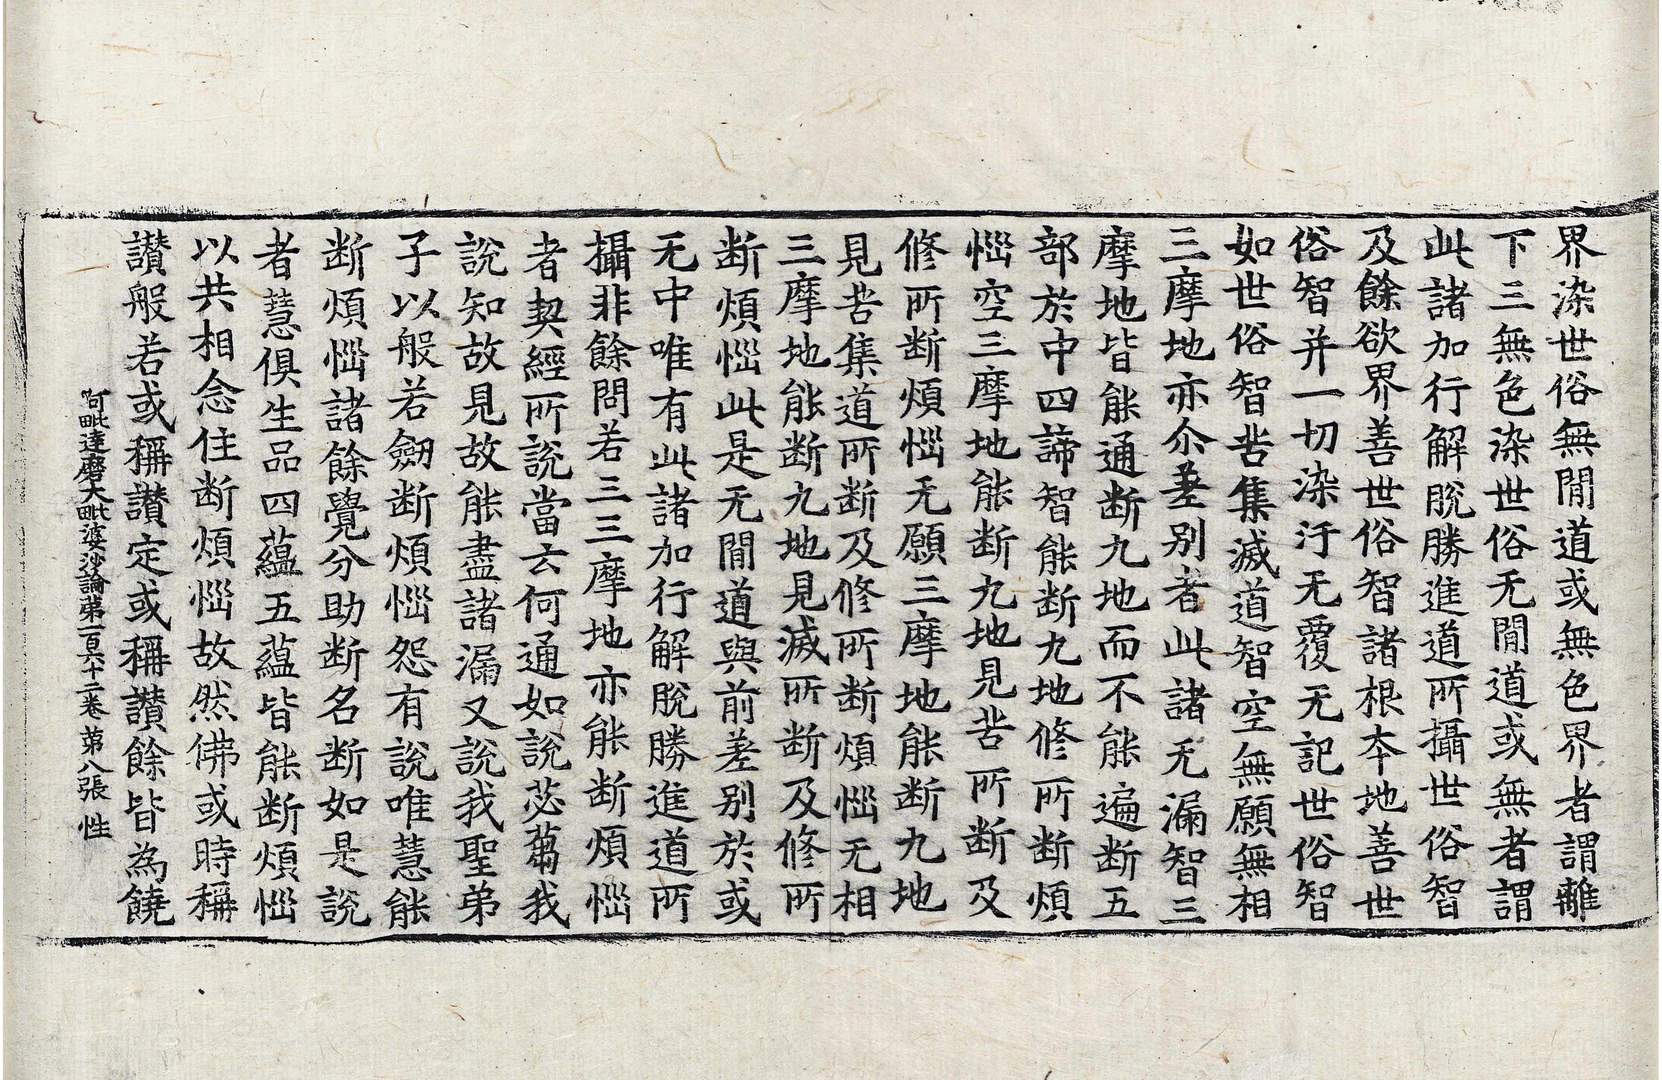 界染世俗無閒道或無色界者謂離
下三無色染世俗无閒道或無者謂
此諸加行解脫勝進道所攝世俗智
及餘欲界善世俗智諸根本地善世
俗智并一切染汙无覆无記世俗智
如世俗智苦集滅道智空無願無相
三摩地亦尒差別者此諸无漏智三
摩地皆能通断九地而不能遍断五
部於中四諦智能断九地修所断煩
惱空三摩地能断九地見苦所断及
修所断煩惱无願三摩地能断九地
見苦集道所断及修所断煩惱无相
三摩地能断九地見滅所断及修所
断煩惱此是无閒道與前差別於或
无中唯有此諸加行解脫勝進道所
攝非餘問若三三摩地亦能断煩惱
者契經所說當云何通如說苾蒭我
說知故見故能盡諸漏又說我聖弟
子以般若劒断煩惱怨有說唯慧能
断煩惱諸餘覺分助断名断如是說
者慧俱生品四蘊五蘊皆能断煩惱
以共相念住断煩惱故然佛或時稱
讃般若或稱讃定或稱讃餘皆為饒
阿毗達磨大毗婆沙論第一百六十二卷 第八張 性